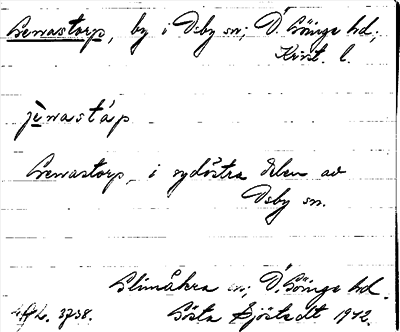 Genastorp, by i Osby sn; Ö. Göinge hd,
Krist. l.
jènastáp
Genastorp, i sydöstra delen av
Osby sn.
Glimåkra sn; Ö. Göinge hd.
3738. Gösta Sjöstedt 1942.